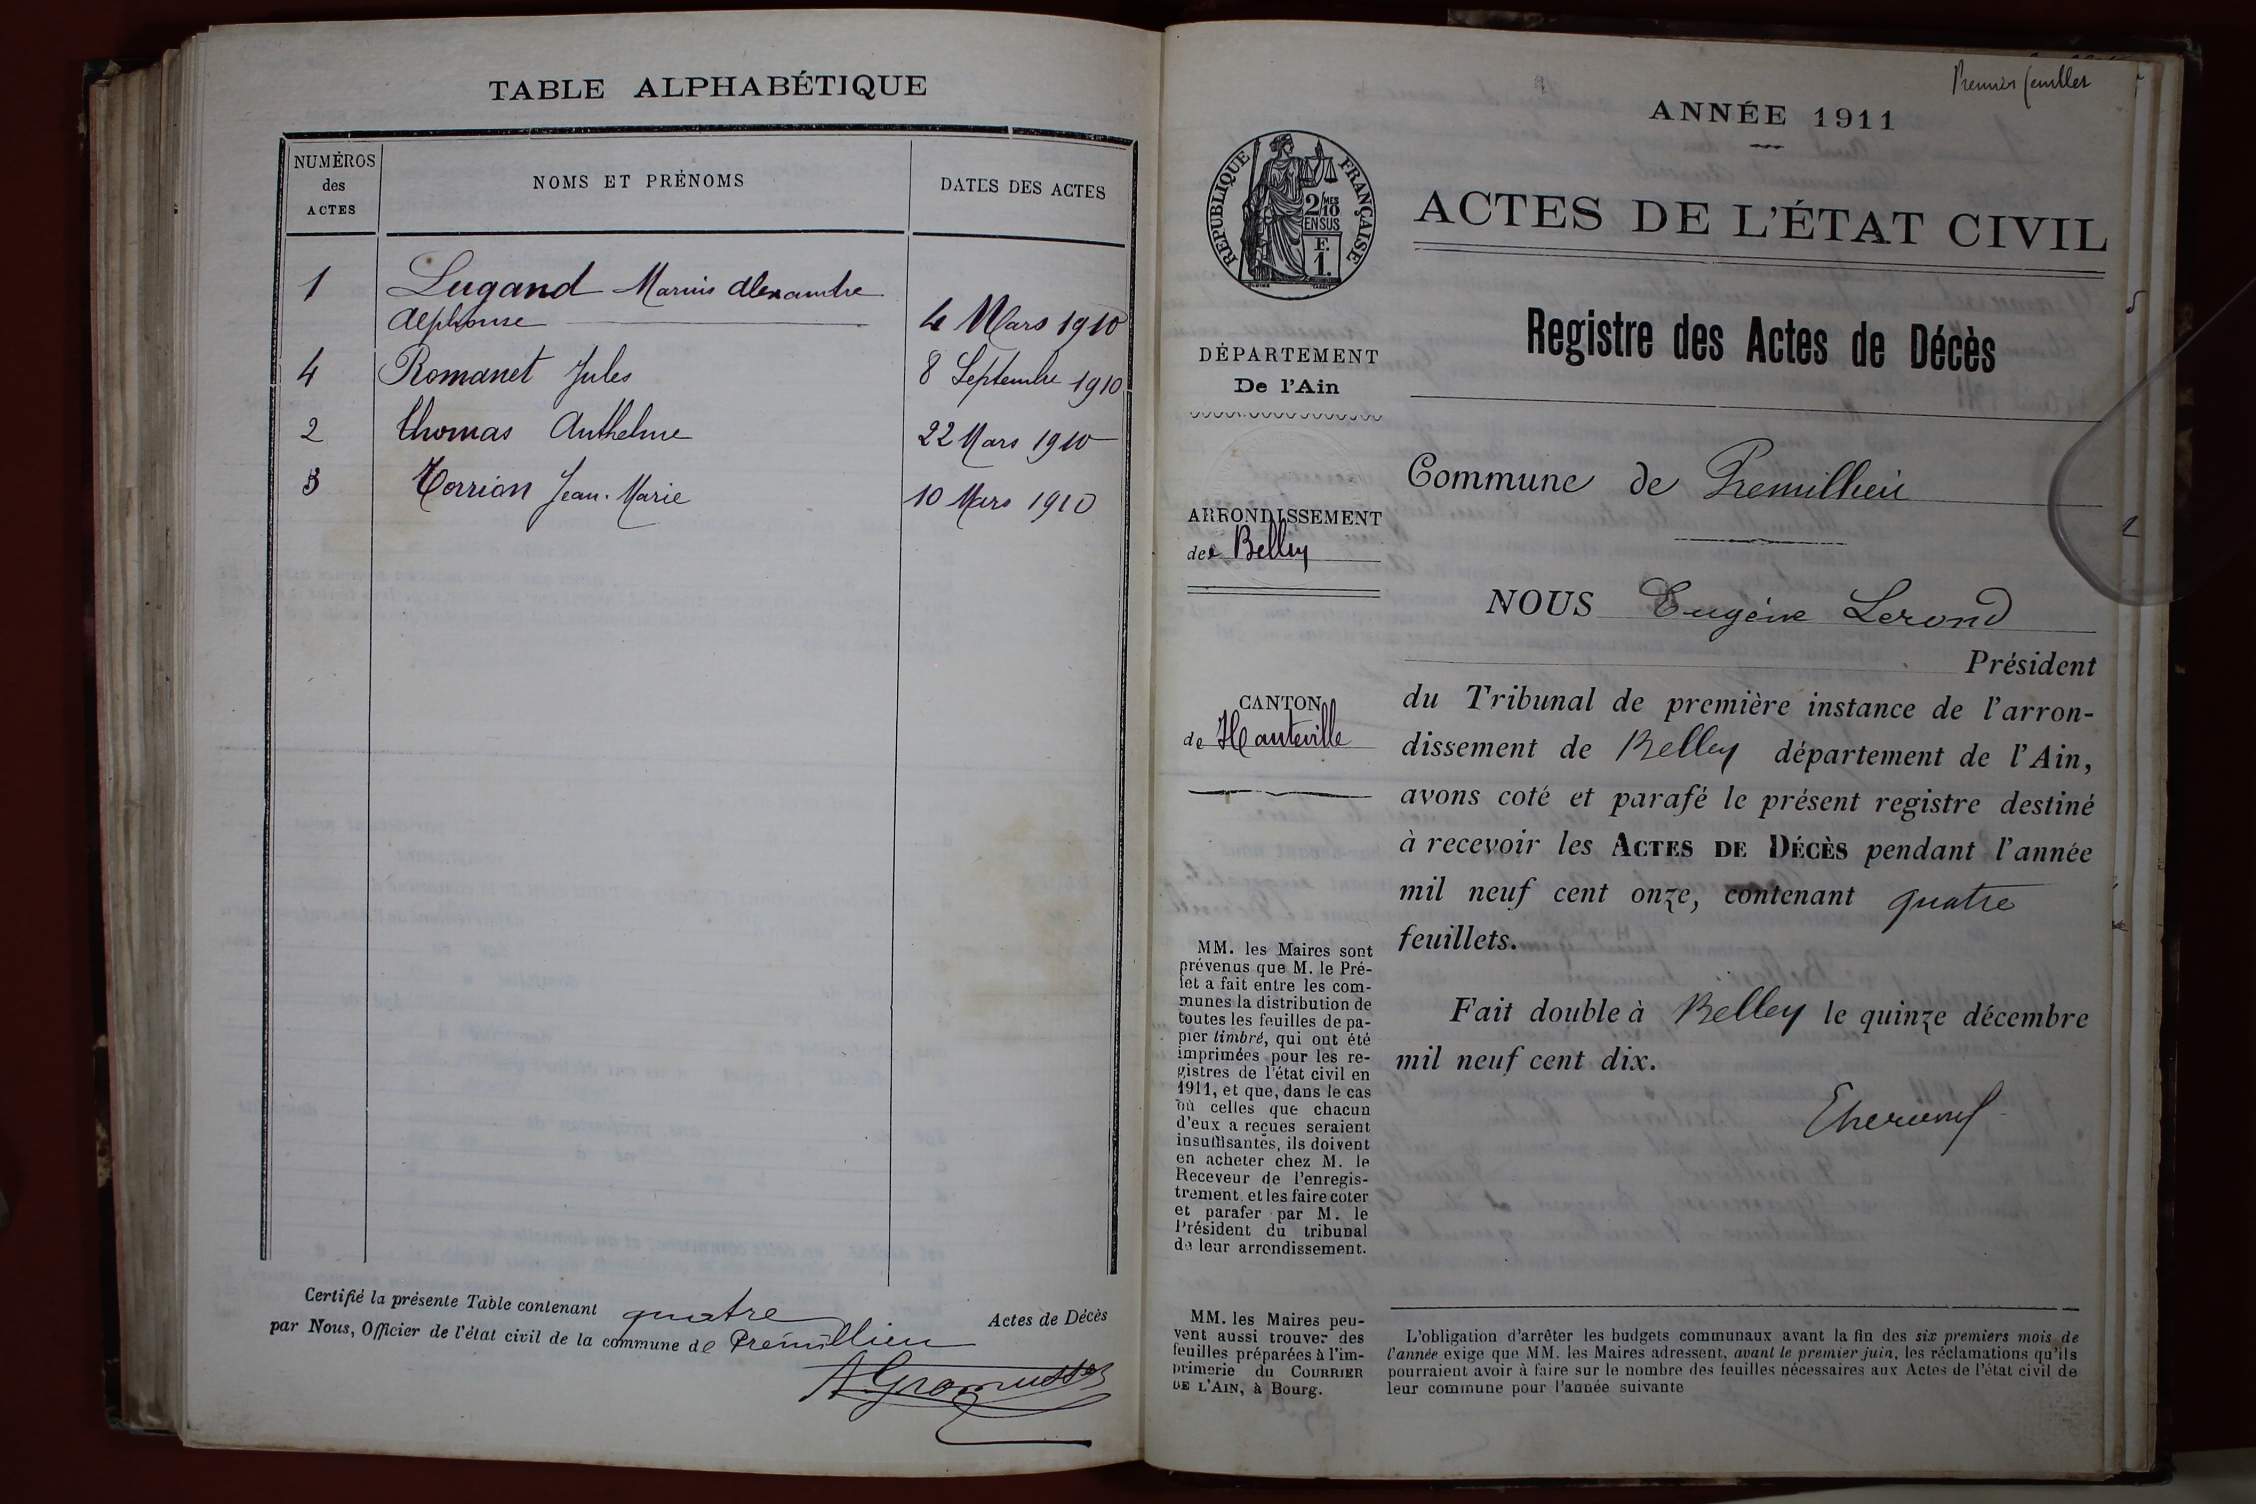 TABLE ALPHABÉTIQUE
NUMÉROS
des
ACTES
NOMS ET PRÉNOMS
DATES DES ACTES
1 Lugand Marius Alexandre
Alphonse 4 Mars 1910
4 Romanet Jules 8 Septembre 1910
2 Thomas Anthelme 22 Mars 1910
3 Torrion Jean-Marie 10 Mars 1910
Certifié la présente Table contenant quatre Actes de Décès
par Nous, Officier de l'état civil de la commune de Prémillieu
Premier feuillet
ANNÉE 1911
RÉPUBLIQUE FRANÇAISE
2/10 MES
EN SUS
F.
1.
ACTES DE L'ÉTAT CIVIL
Registre des Actes de Décès
DÉPARTEMENT
De l'Ain
ARRONDISSEMENT
de Belley
CANTON
de Hauteville
MM. les Maires sont
prévenus que M. le Pré-
fet a fait entre les com-
munes la distribution de
toutes les feuilles de pa-
pier timbré, qui ont été
imprimées pour les re-
gistres de l'état civil en
1911, et que, dans le cas
où celles que chacun
d'eux a reçues seraient
insuffisantes, ils doivent
en acheter chez M. le
Receveur de l'enregis-
trement, et les faire coter
et parafer par M. le
Président du tribunal
de leur arrondissement.
MM. les Maires peu-
vent aussi trouver des
feuilles préparées à l'im-
primerie du COURRIER
DE L'AIN, à Bourg.
Commune de Premillieu
NOUS Eugène Lerond
Président
du Tribunal de première instance de l'arron-
dissement de Belley département de l'Ain,
avons coté et parafé le présent registre destiné
à recevoir les ACTES DE DÉCÈS pendant l'année
mil neuf cent onze, contenant quatre
feuillets.
Fait double à Belley le quinze décembre
mil neuf cent dix.
L'obligation d'arrêter les budgets communaux avant la fin des six premiers mois de
l'année exige que MM. les Maires adressent, avant le premier juin, les réclamations qu'ils
pourraient avoir à faire sur le nombre des feuilles nécessaires aux Actes de l'état civil de
leur commune pour l'année suivante